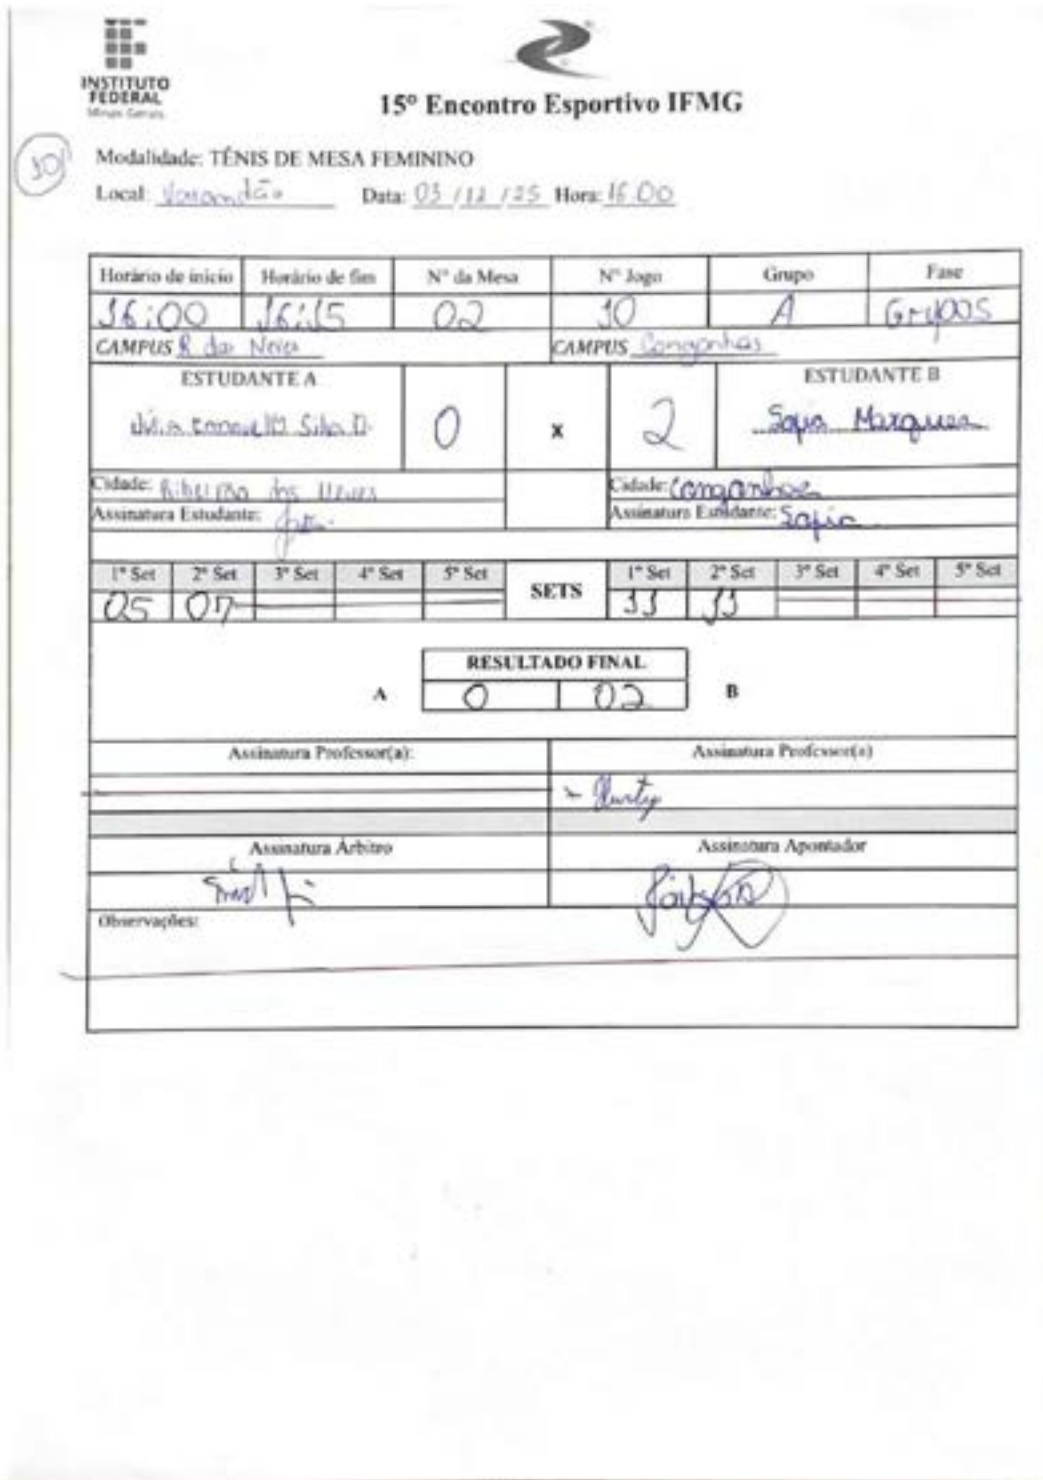 INSTITUTO
FEDERAL
Minas Gerais
15º Encontro Esportivo IFMG
10
Modalidade: TÊNIS DE MESA FEMININO
Local: Varandão Data: 03/12/25 Hora: 16:00
Horário de inicio Horário de fim Nº da Mesa Nº Jogo Grupo Fase
16:00 16:15 02 10 A Grupos
CAMPUS R. das Neves CAMPUS Congonhas
ESTUDANTE A ESTUDANTE B
Júlia Silva D. 0 x 2 Sofia Marques
Cidade: Ribeirão das Neves Cidade: Congonhas
Assinatura Estudante: Assinatura Estudante: Sofia
1º Set 2º Set 3º Set 4º Set 5º Set SETS 1º Set 2º Set 3º Set 4º Set 5º Set
05 07 11 11
RESULTADO FINAL
A 0 02 B
Assinatura Professor(a): Assinatura Professor(a)
Assinatura Árbitro Assinatura Apontador
Observações: